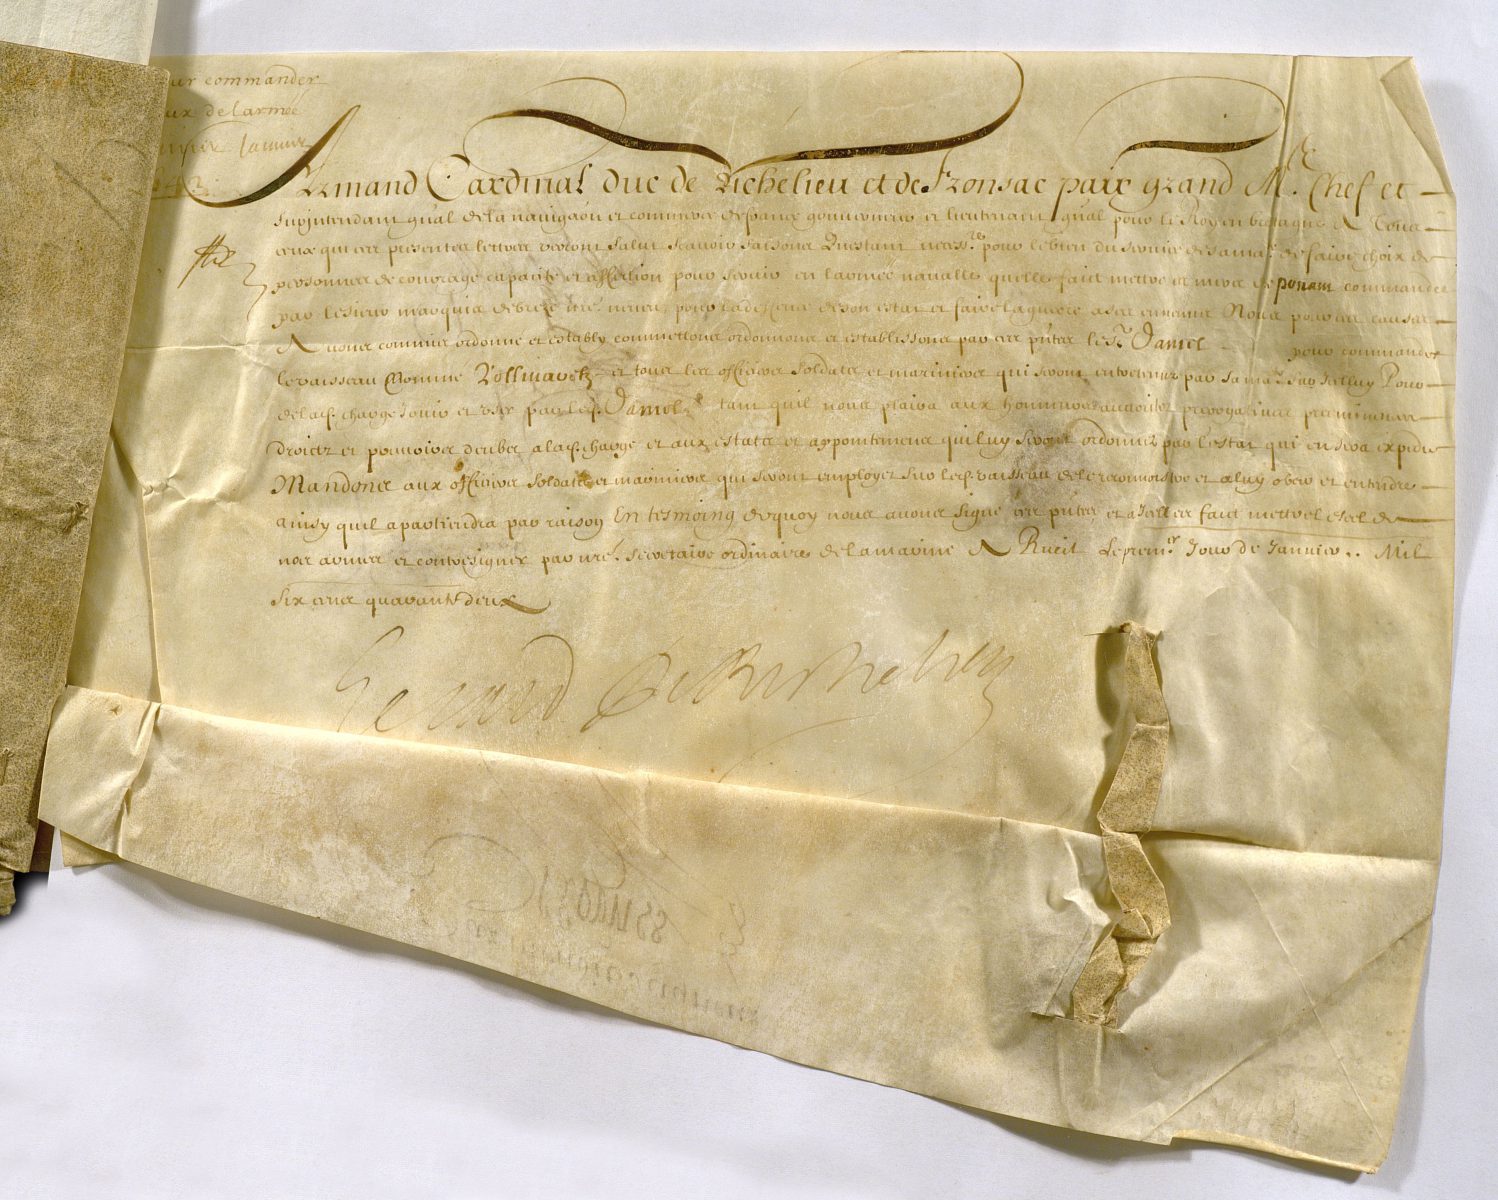 ur commander
ux de larmee
Armand Cardinal duc de Richelieu et de Fronsac pair grand Me. Chef et
Surintendant gñal de la nauigaõn et commerce de france gouuerneur et lieutenant gñal pour le Roy en bretagne A Tous
ceux qui ces presentes lettres verront Salut Scauoir faisons Questant necesse. pour le bien du seruice de sa mate. de faire choix de
personnes de courage capacité et affection pour seruir en larmée naualle quelle faict mettre en mer de ponant commandée
par le sieur marquis de brezé nre. neueu, pour la deffence de son estat et faire la guerre a ses ennemis Nous pour ces causes
Auons commis ordonné et estably commettons ordonnons et establissons par ces pñtes le Sr. Daniel pour commander
le vaisseau Nommé et tous les officiers soldats et mariniers qui seront entretenus par sa mate. sur Icelluy Pour
de lad. charge Jouir et vser par led. Sr. Daniel tant quil nous plaira aux honneurs auctoritez prerogatiues preeminences
droictz et pouuoirs deubes a lad. charge et aux estats et appointemens qui luy seront ordonnez par lestat qui en sera expedié
Mandons aux officiers soldats et mariniers qui seront employez sur led. vaisseau de le reconnoistre et a luy obeir et entendre
ainsy quil apartiendra par raison En tesmoing dequoy nous auons signé ces pñtes et a Icelles faict mettre le scel de
nos armes et contresigner par nre. secretaire ordinaire de la marine A Ruel Le premr. Jour de Januier .. Mil
six cens quarante deux
Le card de Richelieu